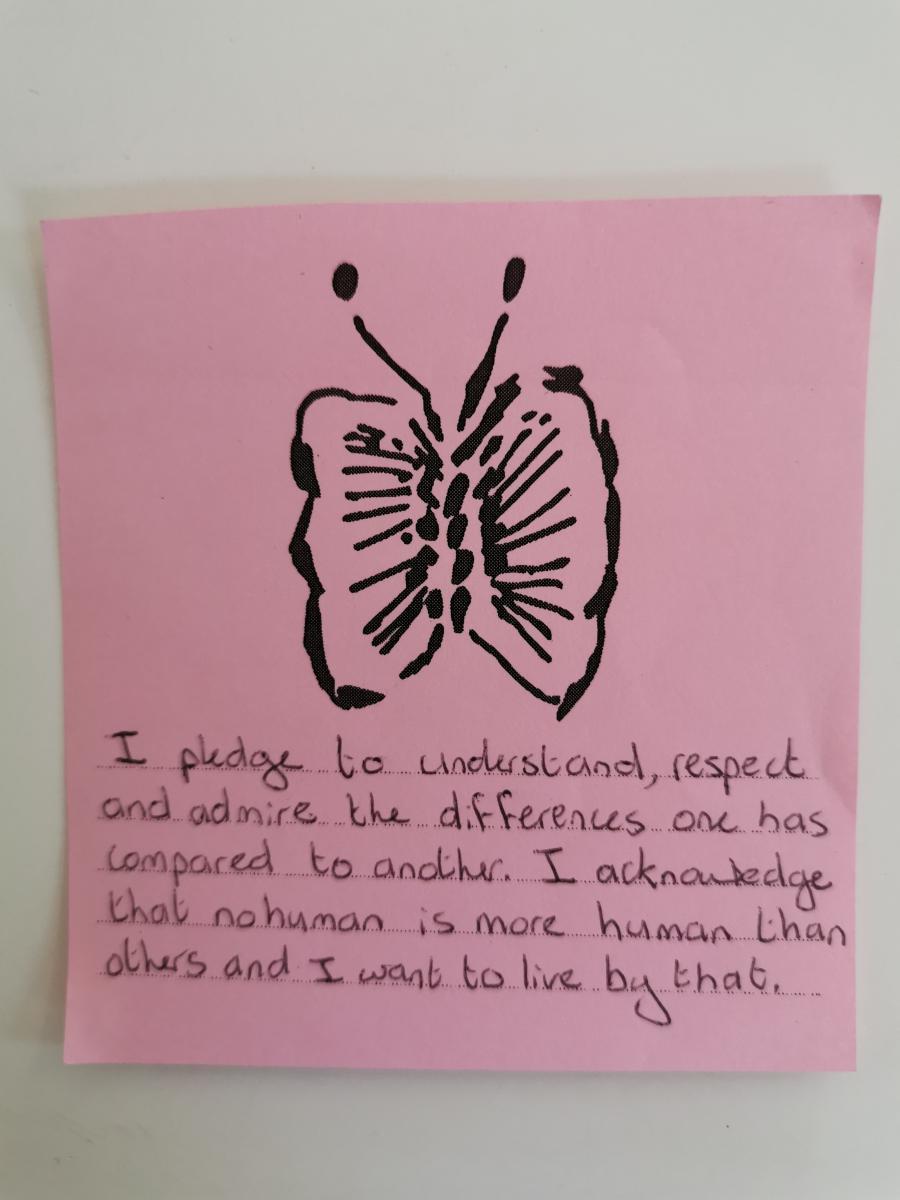 I pledge to understand, respect
and admire the differences one has
compared to another. I acknowledge
that no human is more human than
others and I want to live by that.